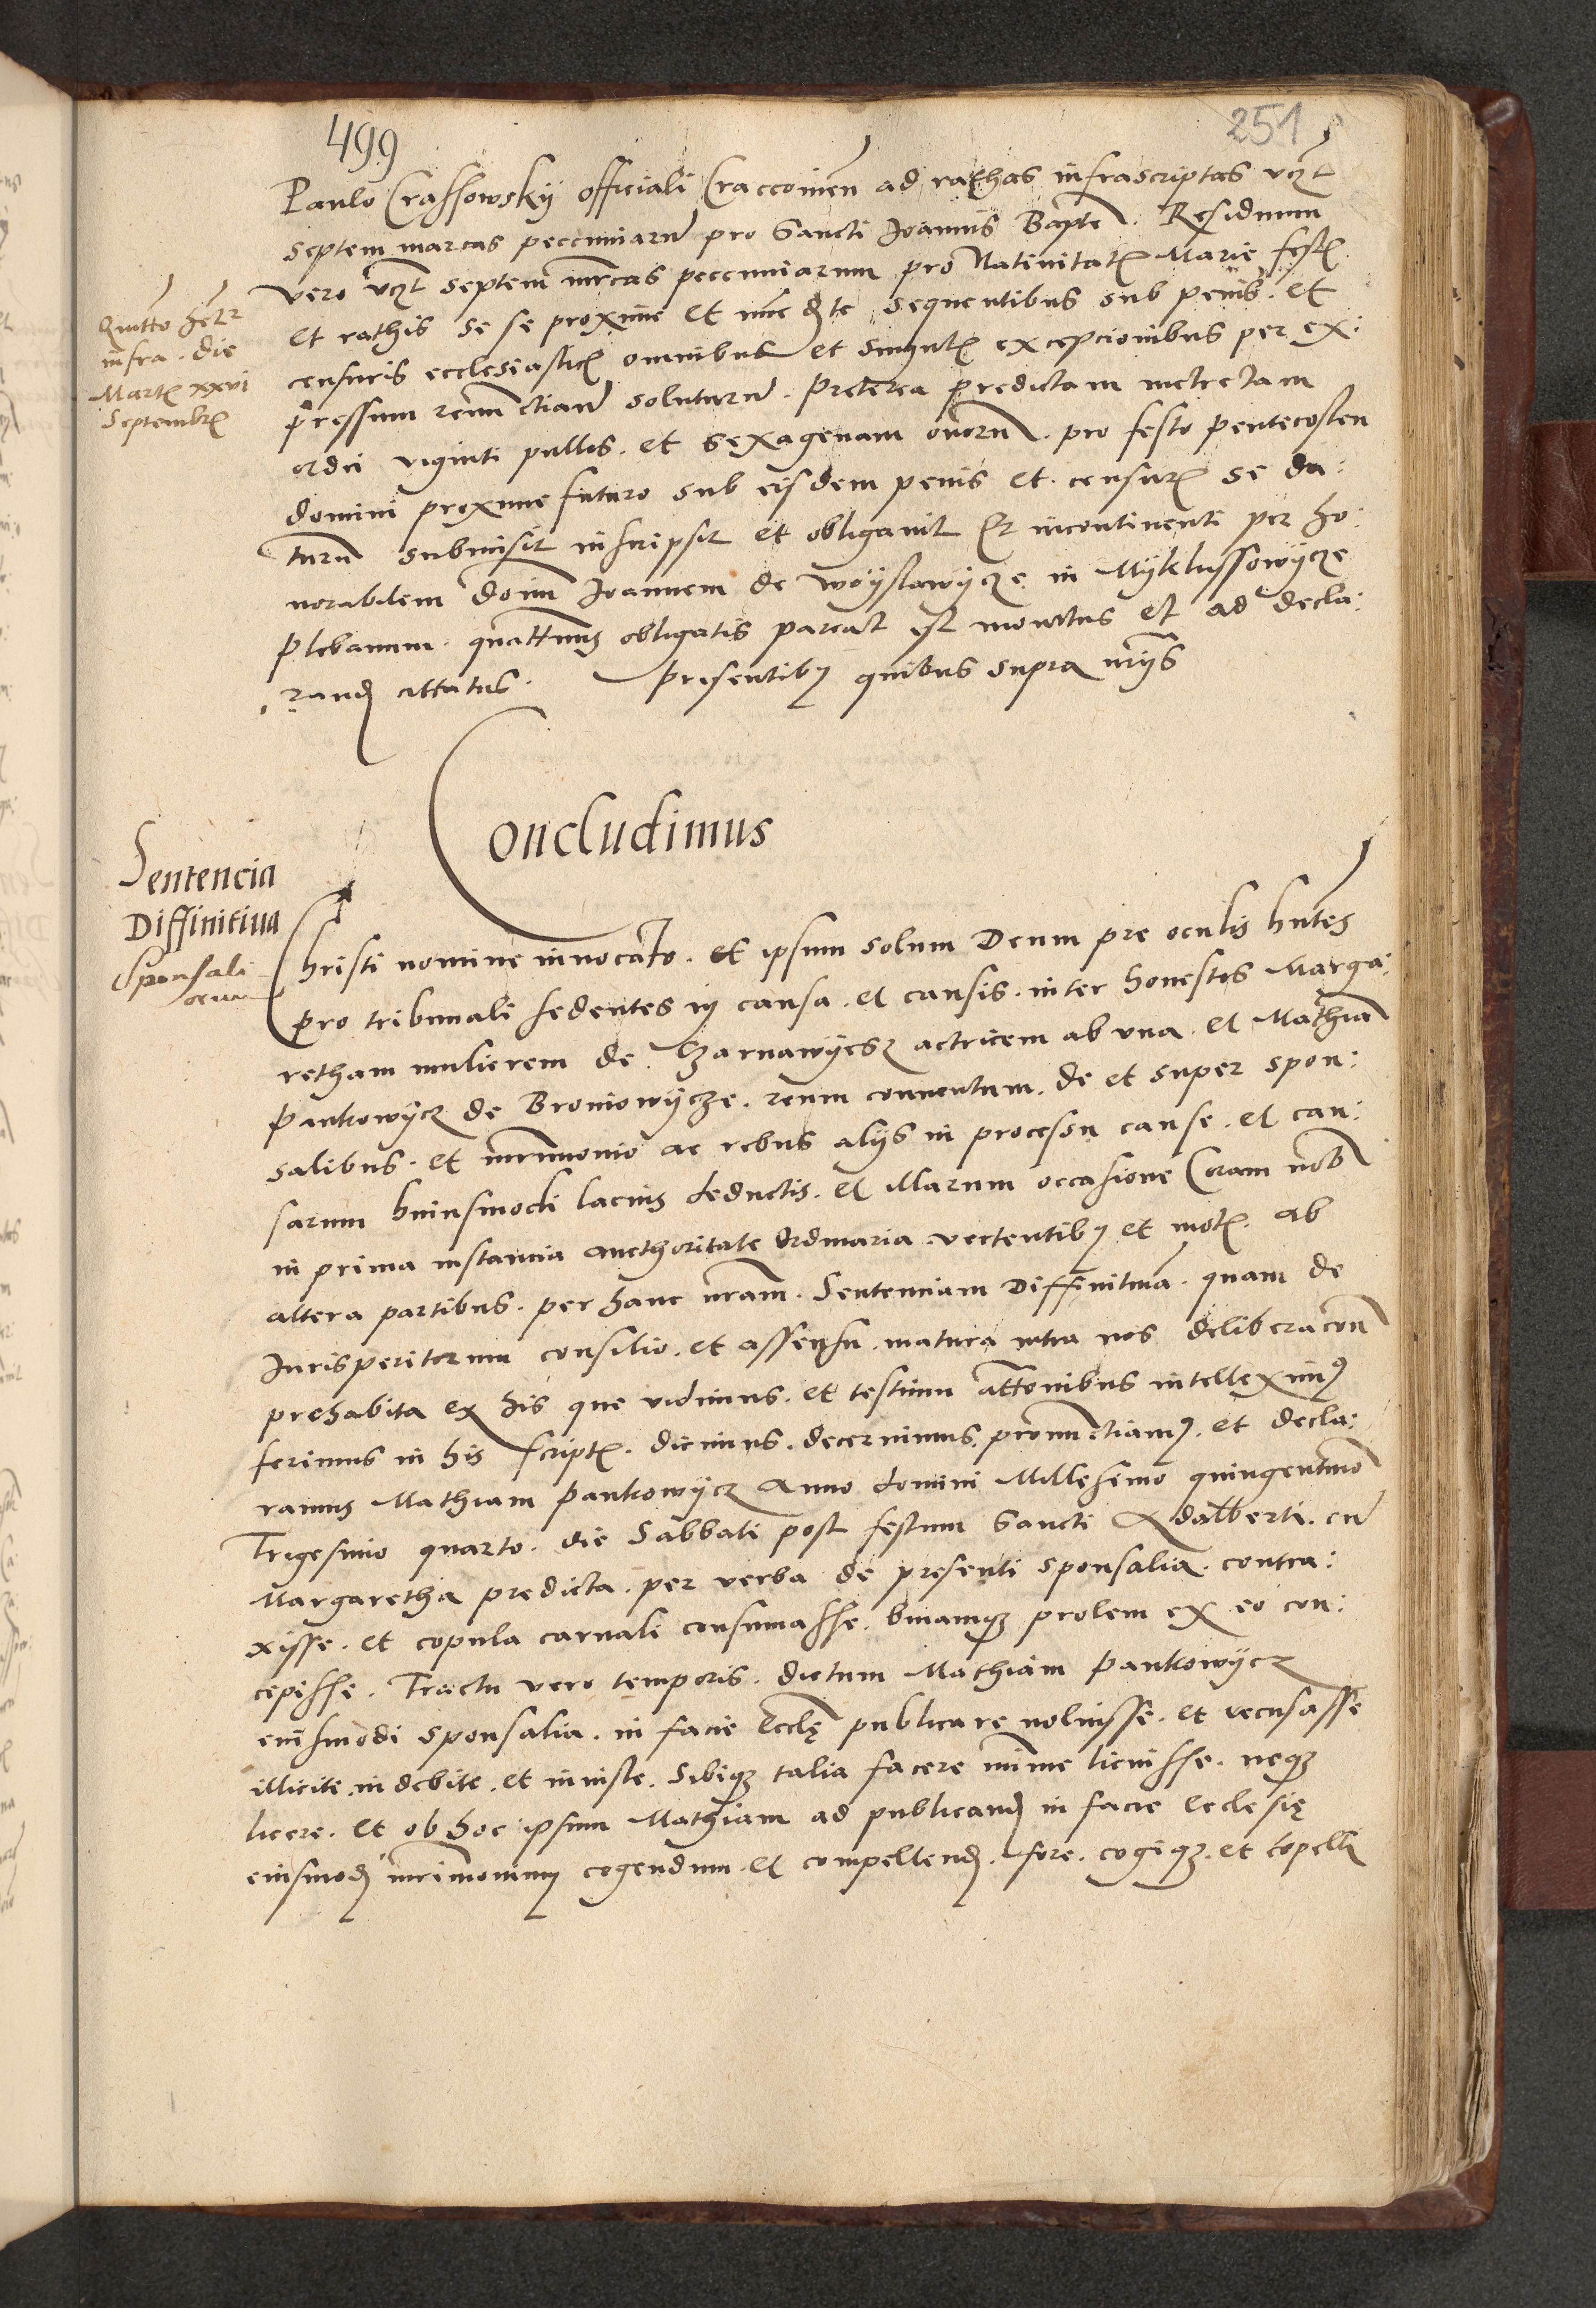 499
251
Paulo Crassowskÿ officiali Craccouien ad rathas infrascriptas vczt
septem marcas pecuniaru pro Sancti Joannis Bapte. Residuum
vero vczt septem mrcas pecuniarum pro Natiuitatis Marie festis
et rathis se se proxime et sequentibus sub penis. et
censuris ecclesiasticis omnibus et singulis excepcionibus per ex:
pressum renunctiand soluturu. Preterea predictam metretam
ordei viginti pullos. et sexagenam ouorum. pro festo pentecosten
domini proxime futuro sub eisdem penis et. censuris se da:
turu submisit inscripsit et obligauit Et incontinenti per ho:
norabilem donum Joannem de Woÿslawÿcze in Mÿklussowÿcze
plebanum. quattinus obligatis pareat est monitus et ad decla:
rand cittatus. Presentibus quibus supra
Quitto
infra. die
Martis xxvi
Septembris
Concludimus
Sentencia
Diffinitiua
Sponsali
orum
Christi nomine inuocato. et ipsum solum Deum pre oculis hntes
pro tribunali sedentes in causa. et causis. inter honestos Marga:
retham mulierem de Czarnawÿcsz actricem ab vna. et Mathia
Pankowÿcz de Broniowÿcze. reum conuentum. de et super spon:
salibus. et mrimonio ac rebus alijs in processu cause. et cau:
sarum huiusmodi lacius deductis. et illarum occasione Coram nob
in prima instancia aucthoritate Ordinaria vertentibus et motis. ab
altera partibus. per hanc nram. Sentenciam Diffinitiua. quam de
Jurisperitorum consilio. et assensu. matura intra nos deliberacon
prehabita ex his que vidimus. et testium attonibus intelleximus
ferimus in his scriptis. dicimus. decernimus. pronunctiamus. et decla:
ramus Mathiam Pankowÿcz Anno domini Millesimo quingentmo
Trigesimo quarto. die Sabbati post festum Sancti Adalberti. cu
Margaretha predicta. per verba de presenti sponsalia. contra:
xisse. et copula carnali consumasse. binamque prolem ex eo con:
cepisse. Tractu vero temporis. dictum Mathiam Pankowÿcz
euismodi sponsalia. in facie Eccle publicare noluisse. et recusasse
illicite. indebite. et iniuste. Sibique talia facere minime licuisse. neque
licere. et ob hoc ipsum Mathiam ad publicand in facie Ecclesię
eiusmodi mrimonium cogendum. et compellend. fore. cogique. et copelli